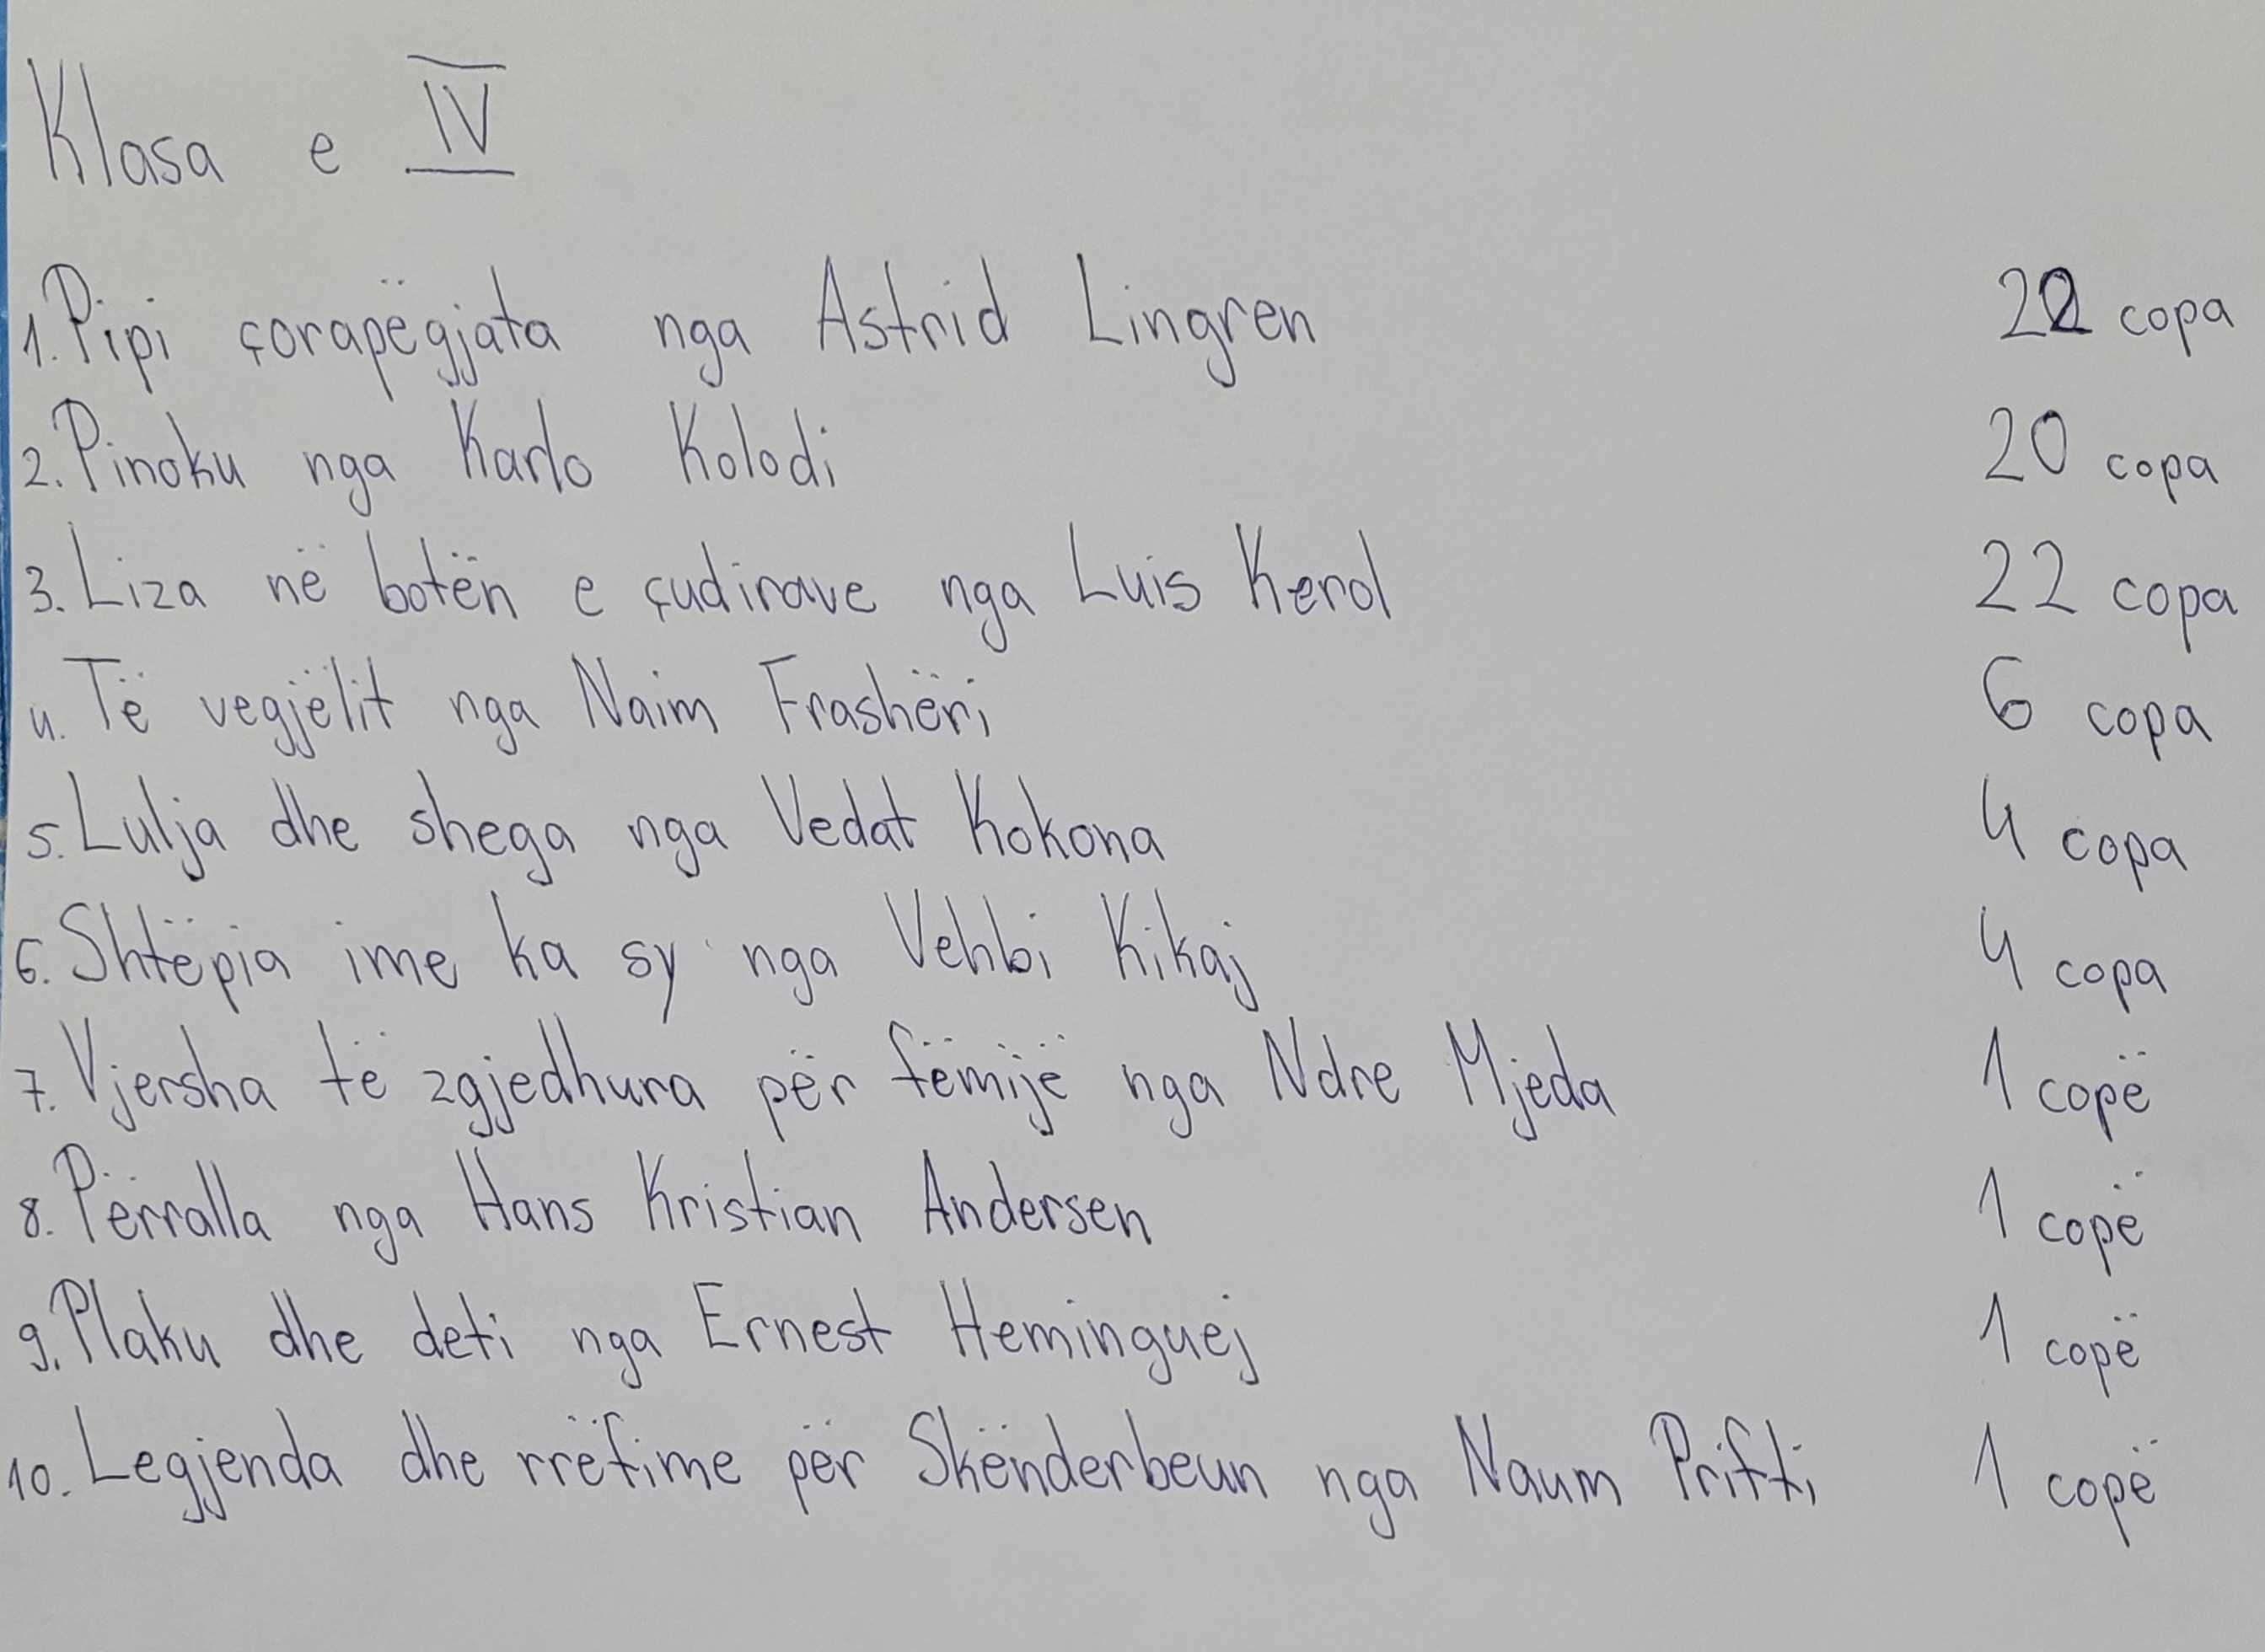 Klasa e IV
1. Pipi çorapëgjata nga Astrid Lingren 22 copa
2. Pinoku nga Karlo Kolodi 20 copa
3. Liza në botën e çudirave nga Luis Kerol 22 copa
4. Të vegjëlit nga Naim Frashëri 6 copa
5. Lulja dhe shega nga Vedat Kokona 4 copa
6. Shtëpia ime ka sy nga Vehbi Kikaj 4 copa
7. Vjersha të zgjedhura për fëmijë nga Ndre Mjeda 1 copë
8. Përralla nga Hans Kristian Andersen 1 copë
9. Plaku dhe deti nga Ernest Heminguej 1 copë
10. Legjenda dhe rrëfime për Skënderbeun nga Naum Prifti 1 copë